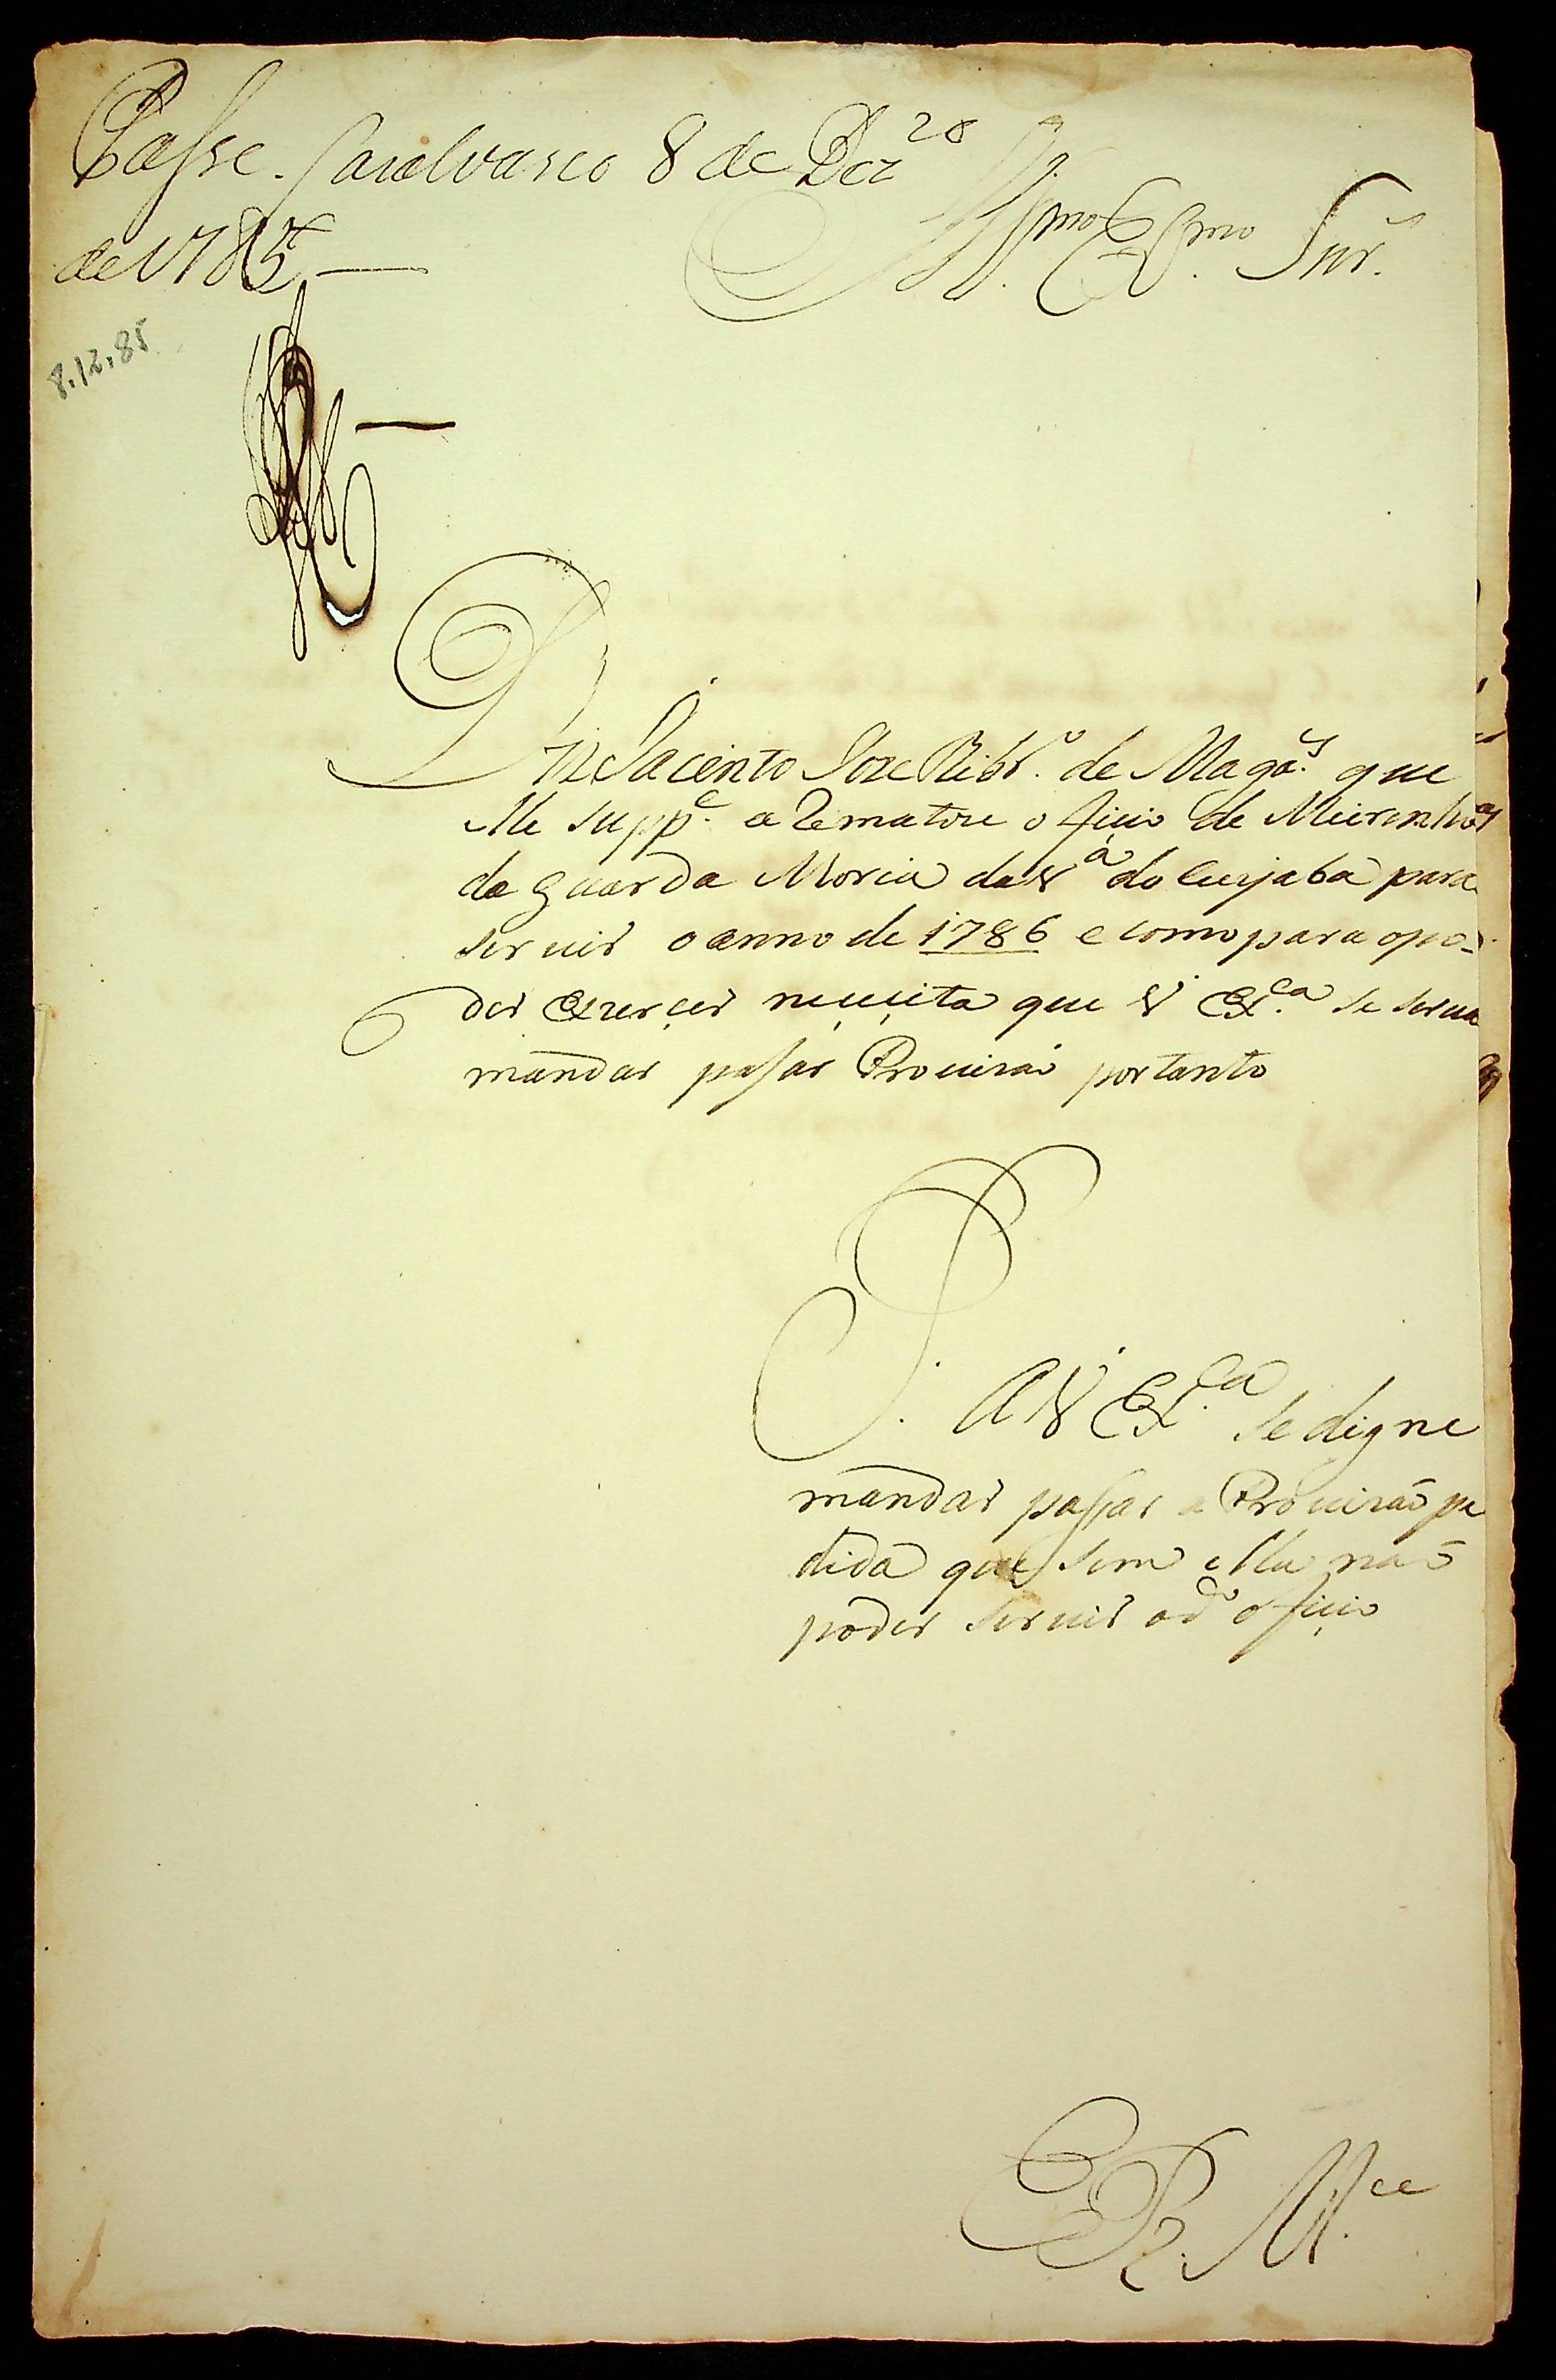 Passe. Casalvasco 8 de Dez.ro
de 1785 —
Ill.mo Ex.mo Snr.
8.12.85
Diz Jacinto Joze Ribr.o de Mag.es que
elle Supp.e a Rematou o ficio de Meirinho
da guarda Moria da V.a do Cuyaba para
servir o anno de 1786 e como para o po-
der Exerçer neçeçita que V Ex.ca se Serva
mandar pasar Provizaõ portanto
P. A V Ex.ca Se digne
mandar passar a Provizaõ pe
dida que sem ella naõ
poder servir o d.o ofiçio
E R. M.ce